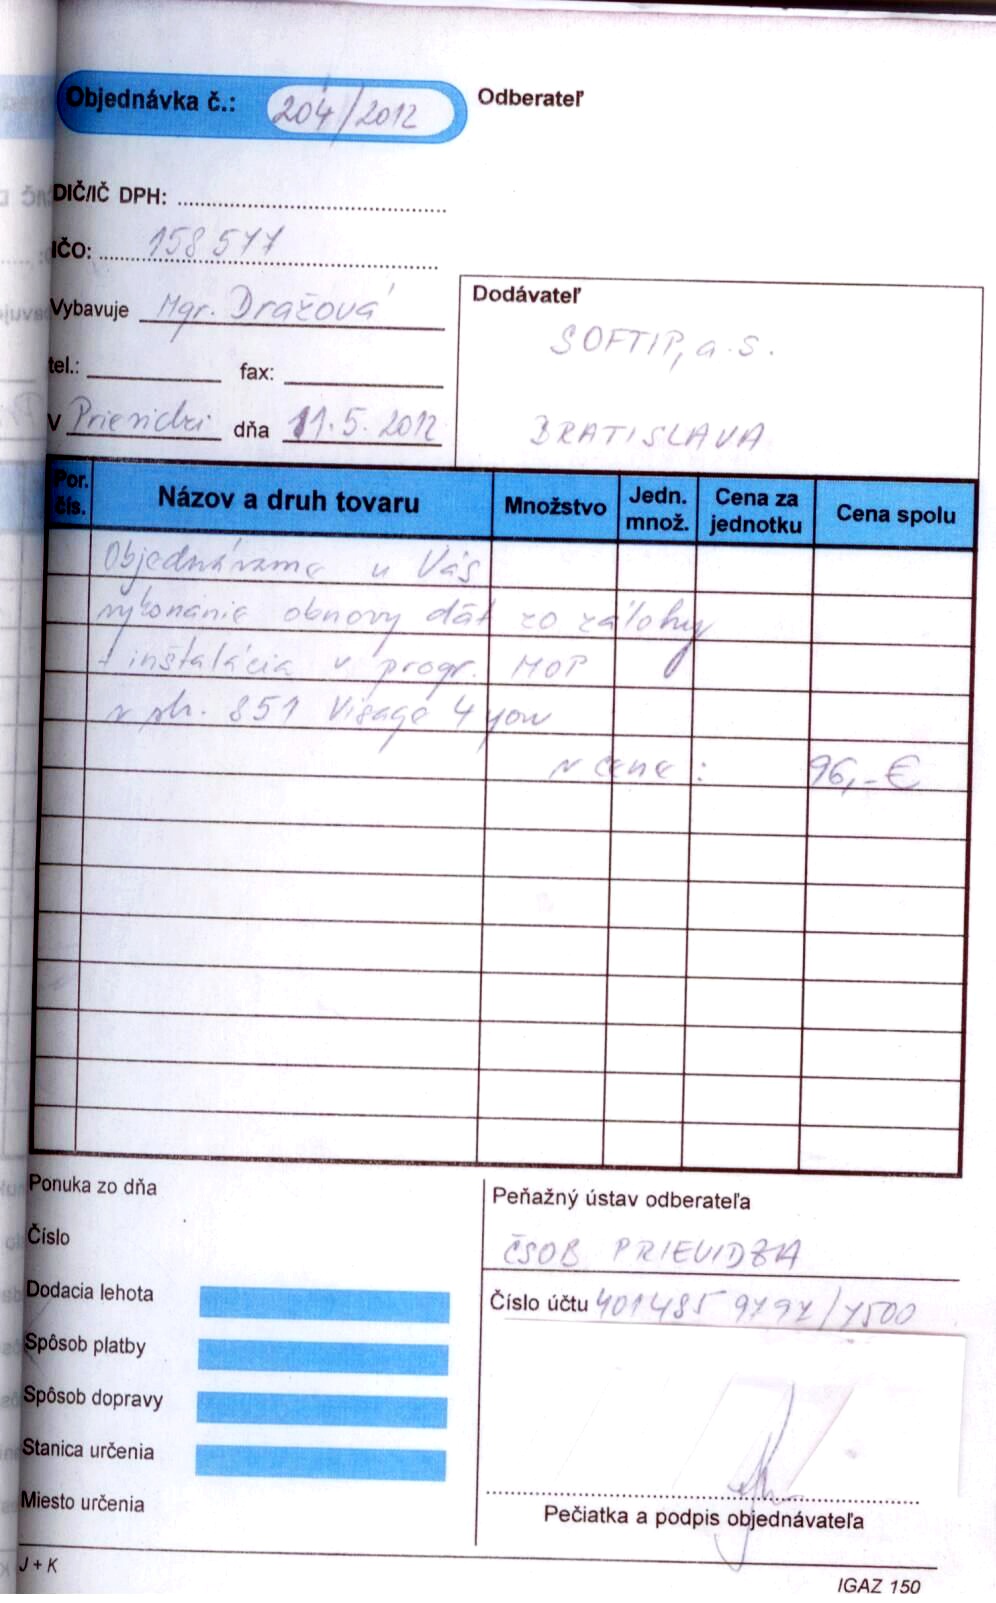 Objednávka č.: 204/2012
Odberateľ
DIČ/IČ DPH:
IČO: 158 577
Vybavuje Mgr. Dražová
tel.: fax:
V Prievidzi dňa 11.5.2012
Dodávateľ
SOFTIP, a.s.
BRATISLAVA
Por. čís. Názov a druh tovaru Množstvo Jedn. množ. Cena za jednotku Cena spolu
Objednávame u Vás
vykonanie obnovy dát zo zálohy
+ inštalácia v progr. MOP
v ph. 851 Visage 4 you
v cene : 96,-€
Ponuka zo dňa
Číslo
Dodacia lehota
Spôsob platby
Spôsob dopravy
Stanica určenia
Miesto určenia
Peňažný ústav odberateľa
ČSOB PRIEVIDZA
Číslo účtu 401485 9797/7500
Pečiatka a podpis objednávateľa
J + K
IGAZ 150